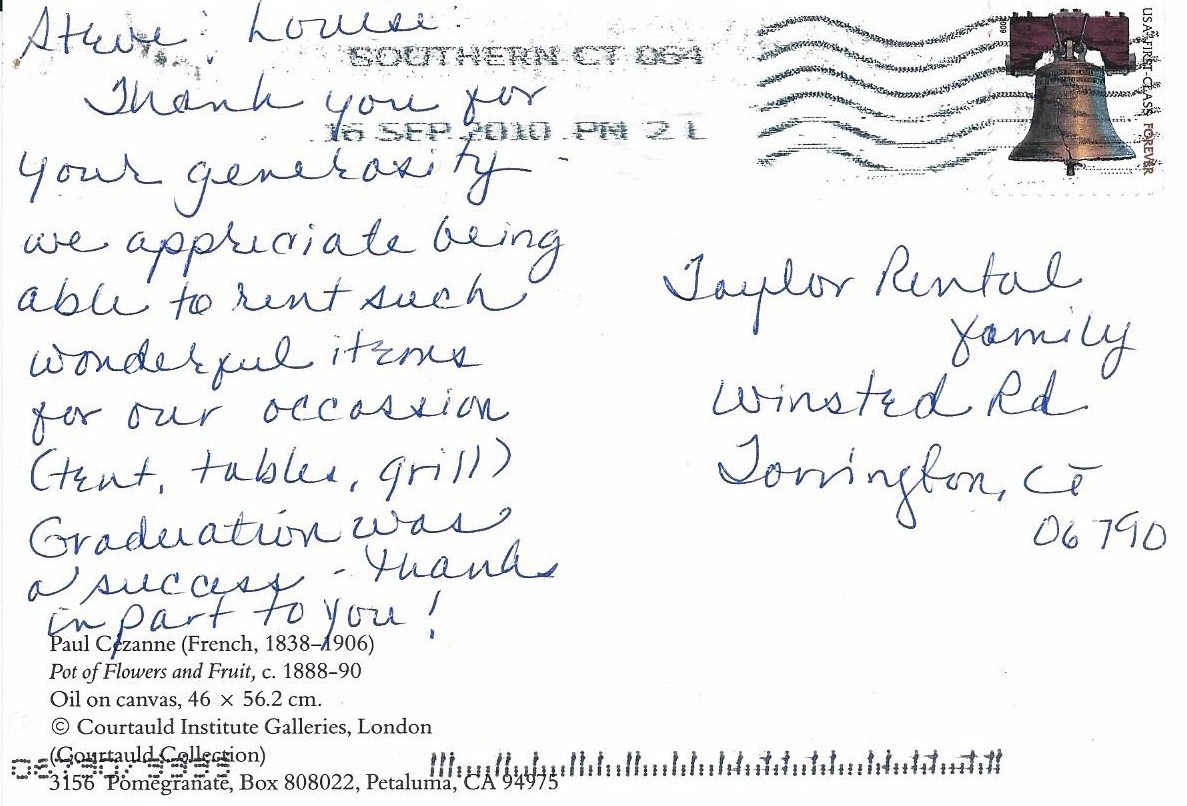 Steve : Louise :
SOUTHERN CT 064
Thank you for
16 SEP 2010 PM 2 L
your generosity -
we appreciate being
able to rent such
wonderful items
for our occassion
(tent, tables, grill)
Graduation was
a success - thanks
in part to you!
USA FIRST-CLASS FOREVER
2009
Taylor Rental
family
Winsted Rd
Torrington, CT
06790
Paul Cézanne (French, 1838–1906)
Pot of Flowers and Fruit, c. 1888–90
Oil on canvas, 46 × 56.2 cm.
© Courtauld Institute Galleries, London
(Courtauld Collection)
3156 Pomegranate, Box 808022, Petaluma, CA 94975